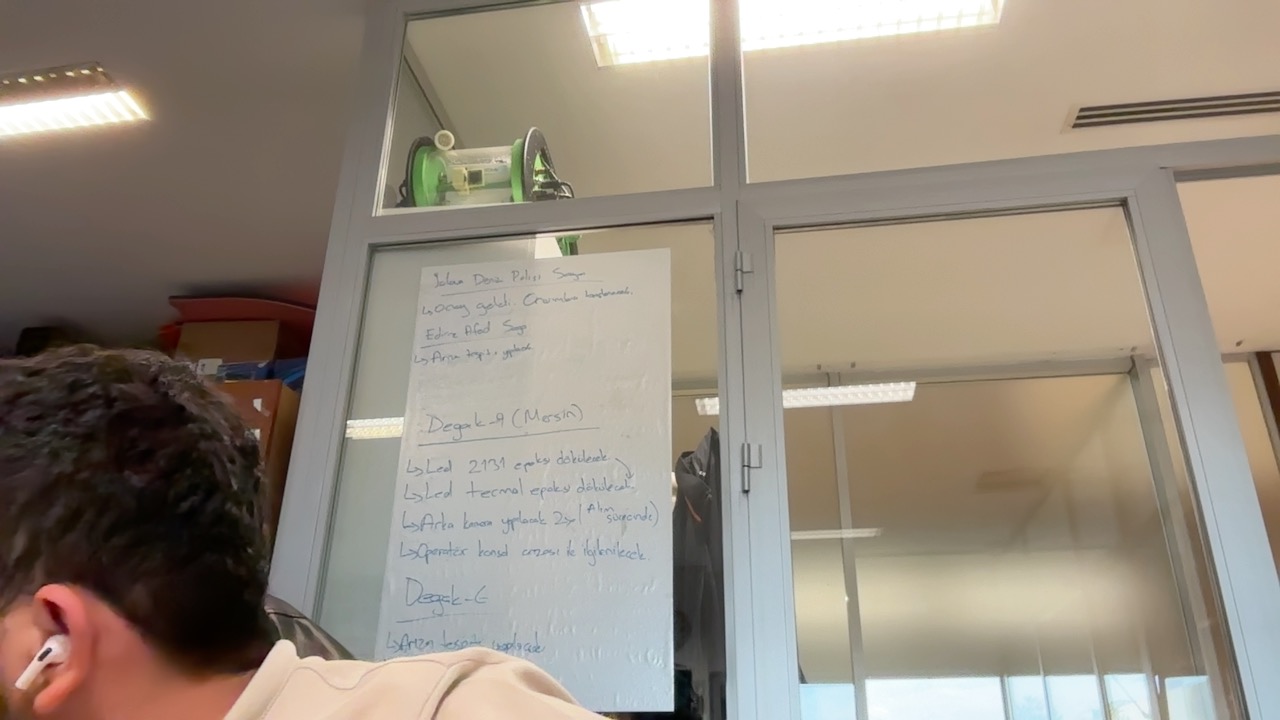 Deniz Polisi
↳ geldi.
Edirne Afad
↳ Arıza tespiti yapılacak
Degak-9 (Mersin)
↳ Led 2131 epoksi dökülecek
↳ Led termal epoksi dökülecek
↳ Arka kamera yapılacak 2x (Alım sürecinde)
↳ Operatör konsol arızası ile ilgilenilecek.
Degak-6
↳ Arıza tespiti yapılacak